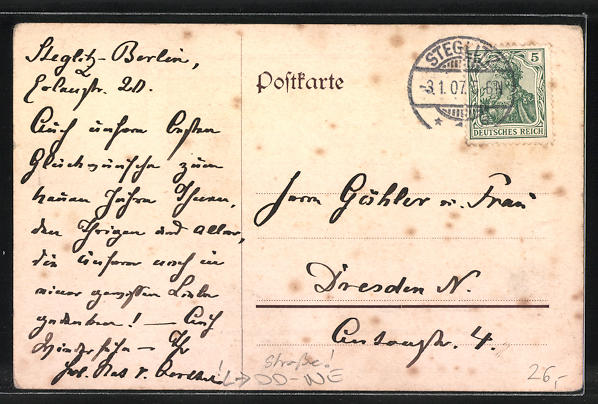 Steglitz-Berlin,
20.
Auch unsern besten
Glückwunsche zum
neuen Jahre Ihnen,
den Ihrigen und allen,
die unsern noch in
einer gewissen Liebe
gedenken! — Auf
Wiedersehn — Ihr
Postkarte
STEGLITZ
-3.1.07.
5
DEUTSCHES REICH
Herrn Gähler u. Frau
Dresden N.
Antonstr. 4.
Straße!
DD-NE
26,-